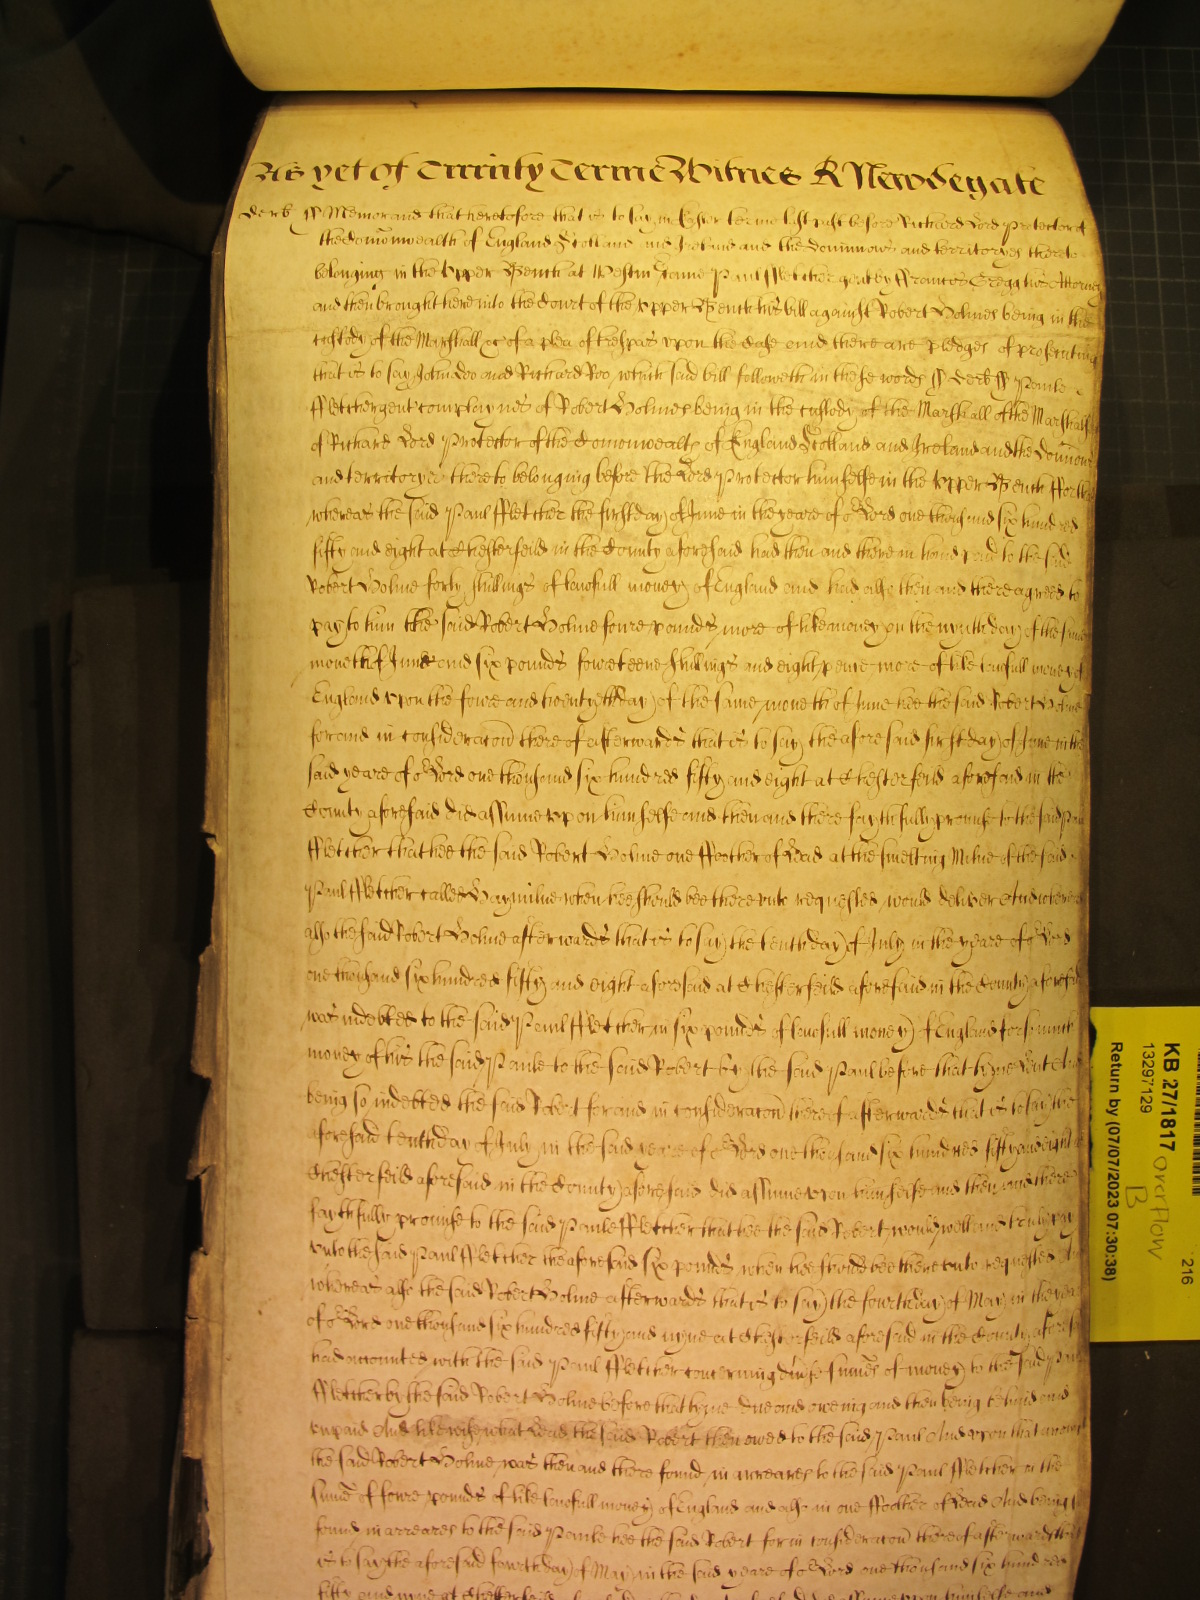 As yet of Trinity Terme Witnes R Newdegate
Derb ss Memorand that heretofore that is to say in Easter terme last past before Richard Lord Protector of
the Comonwealth of England Scotland and Ireland and the Dominions and territoryes thereto
belonging in the Upper Bench at Westm Came Paul ffletcher gent by ffrancis Cregg his Attorney
and then brought here into the Court of the Upper Bench his bill against Robert Holmes being in the
custody of the Marshall &c of a plea of trespas upon the Case and there are pledges of prosecuting
that is to say John Doo and Richard Roo which said bill followeth in these words ss Derb ss Paule
ffletcher gent complaynes of Robert Holmes being in the custody of the Marshall of the Marshals
of Richard Lord Protector of the Comonwealth of England Scotland and Ireland and the Dominions
and territoryes thereto belonging before the Lord Protector himselfe in the Upper Bench ffor that
whereas the said Paul ffletcher the first day of June in the yeare of or Lord one thousand six hundred
fifty and eight at Chesterfeild in the County aforesaid had then and there in hand paid to the said
Robert Holme forty shillings of lawfull money of England and had also then and there agreed to
pay to him the said Robert Holme foure pounds more of like money on the nynth day of the same
moneth of June and six pounds foureteene shillings and eight pence more of like lawfull money of
England upon the foure and twentyeth day of the same moneth of June hee the said Robert Holme
for and in consideracon thereof afterwards that is to say the aforesaid first day of June in the
said yeare of or Lord one thousand six hundred fifty and eight at Chesterfeild aforesaid in the
County aforesaid did assume upon himselfe and then and there faythfully promise to the said Paul
ffletcher that hee the said Robert Holme one ffoother of Lead at the smelting Milne of the said
Paul ffletcher called Haymilne when hee should bee there unto requested would deliver And whereas
also the said Robert Holme afterwards that is to say the tenth day of July in the yeare of or Lord
one thousand six hundred fifty and eight aforesaid at Chesterfeild aforesaid in the County aforesaid
was indebted to the said Paul ffletcher in six pounds of lawfull money of England for so much
money of his the said Paule to the said Robert by the said Paul before that tyme lent And
being so indebted the said Robert for and in consideracon thereof afterwards that is to say the
aforesaid tenth day of July in the said yeare of or Lord one thousand six hundred fifty and eight at
Chesterfeild aforesaid in the County aforesaid did assume upon himselfe and then and there
faythfully promise to the said Paule ffletcher that hee the said Robert would well and truly pay
unto the said Paul ffletcher the aforesaid six pounds when hee should bee thereunto requested And
whereas also the said Robert Holme afterwards that is to say the fourth day of May in the yeare
of or Lord one thousand six hundred fifty and nyne at Chesterfeild aforesaid in the County aforesaid
had accounted with the said Paul ffletcher concerning divse sumes of money to the said Paul
ffletcher by the said Robert Holme before that tyme due and oweing and then being behind and
unpaid And likewise what Lead the said Robert then owed to the said Paul And upon that account
the said Robert Holme was then and there found in arreares to the said Paul ffletcher in the
sume of foure pounds of like lawfull money of England and also in one ffoother of Lead And being so
found in arreares to the said Paule hee the said Robert for in consideracon thereof afterwards that
is to say the aforesaid fourth day of May in the said yeare of or Lord one thousand six hundred
fifty and nyne at Chesterfeild
KB 27/1817 overflow
13297129 B
Return by (07/07/2023 07:30:38)
216